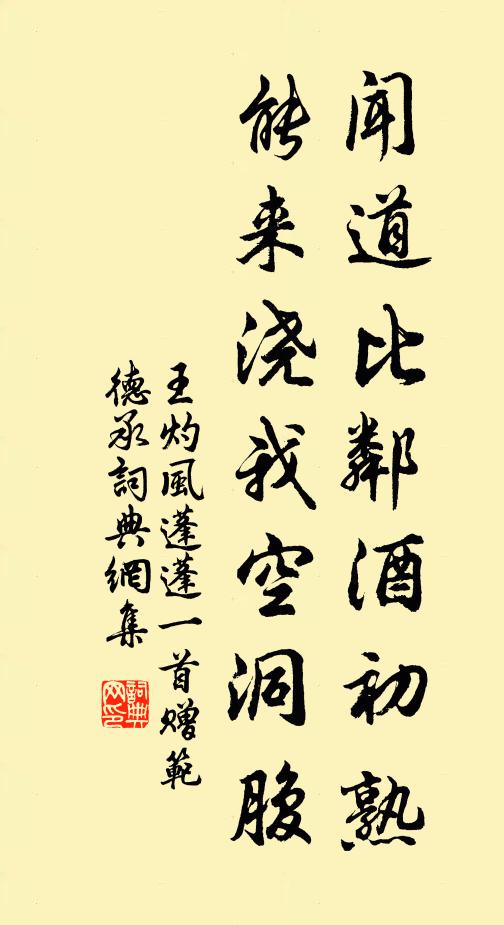 闻道比鄰酒初熟
能来浇我空洞腹
王灼風蓬蓬一首赠範
德承詞典網集
詞典
网印